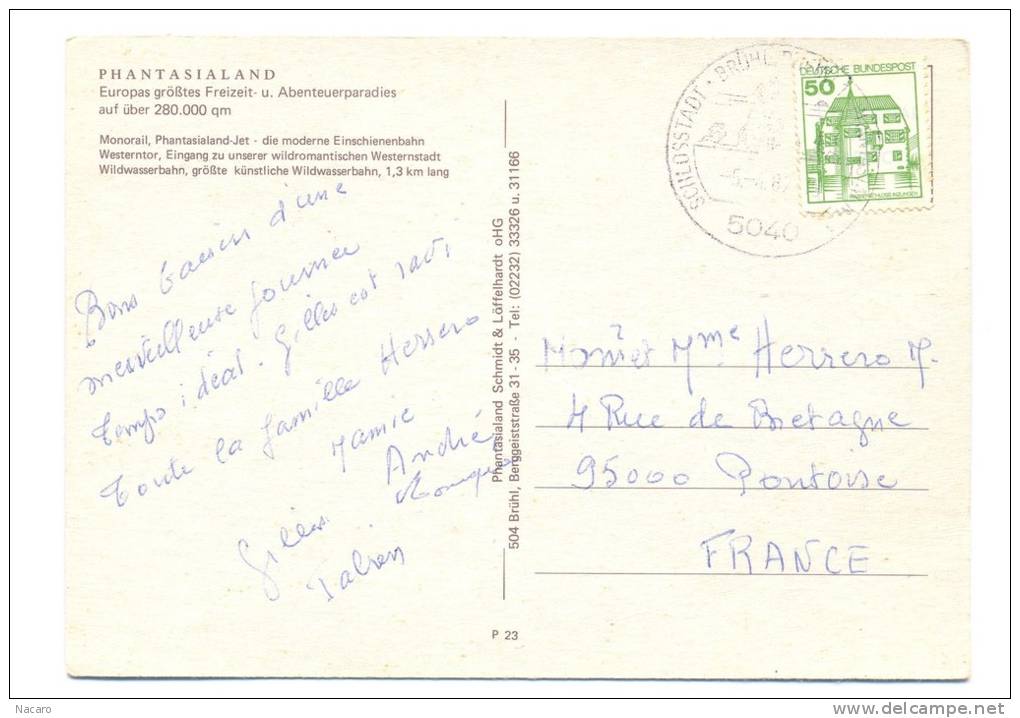 PHANTASIALAND
Europas größtes Freizeit- u. Abenteuerparadies
auf über 280.000 qm
Monorail, Phantasialand-Jet - die moderne Einschienenbahn
Westerntor, Eingang zu unserer wildromantischen Westernstadt
Wildwasserbahn, größte künstliche Wildwasserbahn, 1,3 km lang
Bons baisers d'une
merveilleuse journée
temps idéal. Gilles est ravi
Toute la famille Herrero
Mamie
André
Gilles
Phantasialand Schmidt & Löffelhardt oHG
504 Brühl, Berggeiststraße 31 - 35 - Tel: (02232) 33326 u. 31166
P 23
SCHLOSSSTADT · BRÜHL
5040
DEUTSCHE BUNDESPOST
50
et Mme Herrero M.
4 Rue de Bretagne
95000 Pontoise
FRANCE
Nacaro
delcampe.net